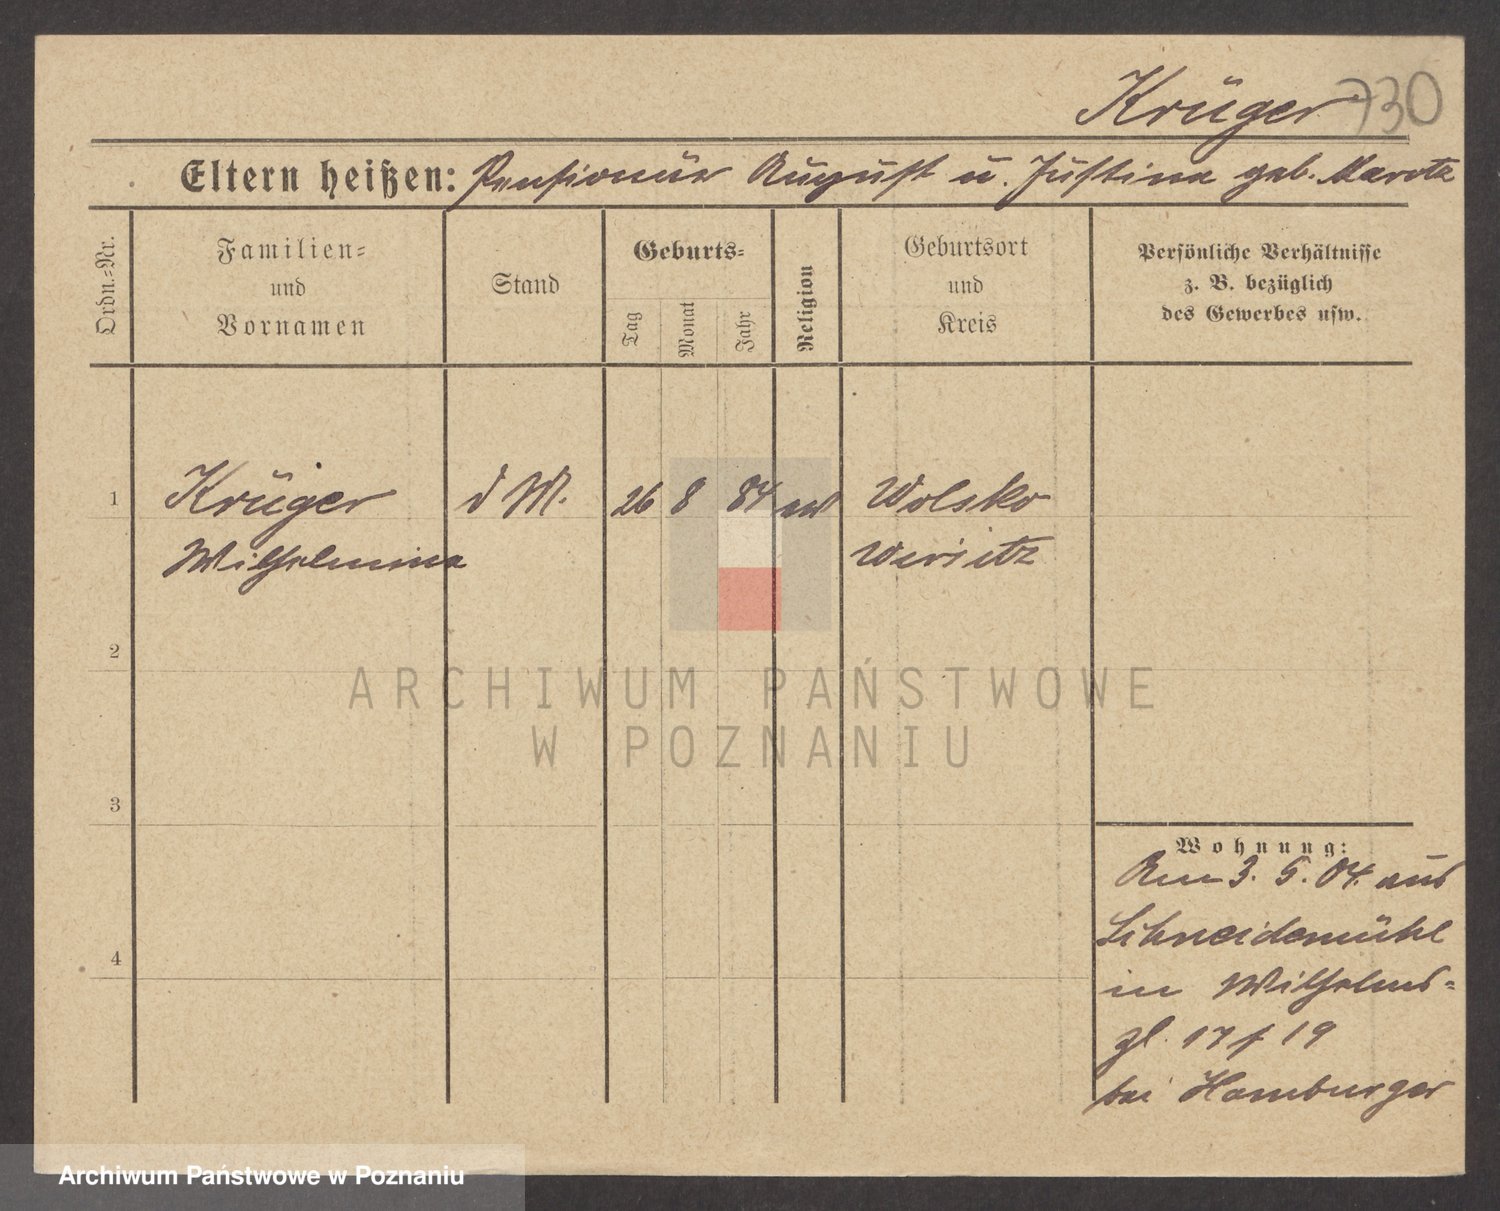 Krüger 730
Eltern heißen: Pensionär August u. Justina geb. Marotz
Ordn.-Nr.
Familien-
und
Vornamen
Stand
Geburts-
Tag
Monat
Jahr
Religion
Geburtsort
und
Kreis
Persönliche Verhältnisse
z. B. bezüglich
des Gewerbes usw.
1 Krüger d M. 26 8 84 ev Wolsko
Wilhelmina Wirsitz
2
3
4
Wohnung:
Am 3. 5. 04. aus
Schneidemühl
in Wilhelms-
pl. 17 f 19
bei Hamburger
ARCHIWUM PAŃSTWOWE
W POZNANIU
Archiwum Państwowe w Poznaniu